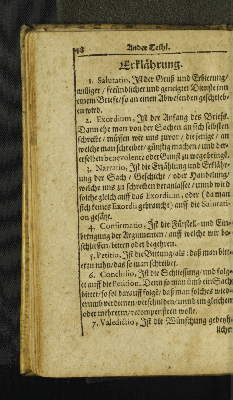 98 Ander Theil.
Erklährung.
1. Salutatio, Ist der Gruß und Erbietung/
williger/ freündlicher und geneigter Dienste inn
einem Briefe/ so an einen Abwesenden geschrieb-
en wird.
2. Exordium, Ist der Anfang des Briefs.
Dann ehe man von der Sachen an sich selbsten
schreibt/ müssen wir uns zuvor/ die jenige/ an
welche man schreibet/ günstig machen/ und der-
erselben benevolentz oder Gunst zu wege bringē.
3. Narratio, Ist die Erzählung und Erklähr-
ung der Sach/ Geschicht/ oder Handelung/
welche uns zu schreiben veranlasset/ unnd wird
solche gleich auff das Exordium, oder (da man
sich keines Exordii gebraucht) auff die Salutati-
on gesätzt.
4. Confirmatio, Ist die Fürstell- und Ein-
bringung der Argumenten/ auff welche wir be-
schliessen/ bitten oder begehren.
5. Petitio, Ist die Bittung/ als: daß man bitt-
et zu thun/ das so man schreibet.
6. Conclusio, Ist die Schliessung/ und folg-
et auff die Petition. Denn so man umb ein Sach
bittet/ so sol darauff folgē/ daß man solches wied-
erumb verdienen/ verschulden/ unnd im gleichen
oder mehrerm/ recompensiern wolle.
7. Valedictio, Ist die Wünschung gedeyh-
licher